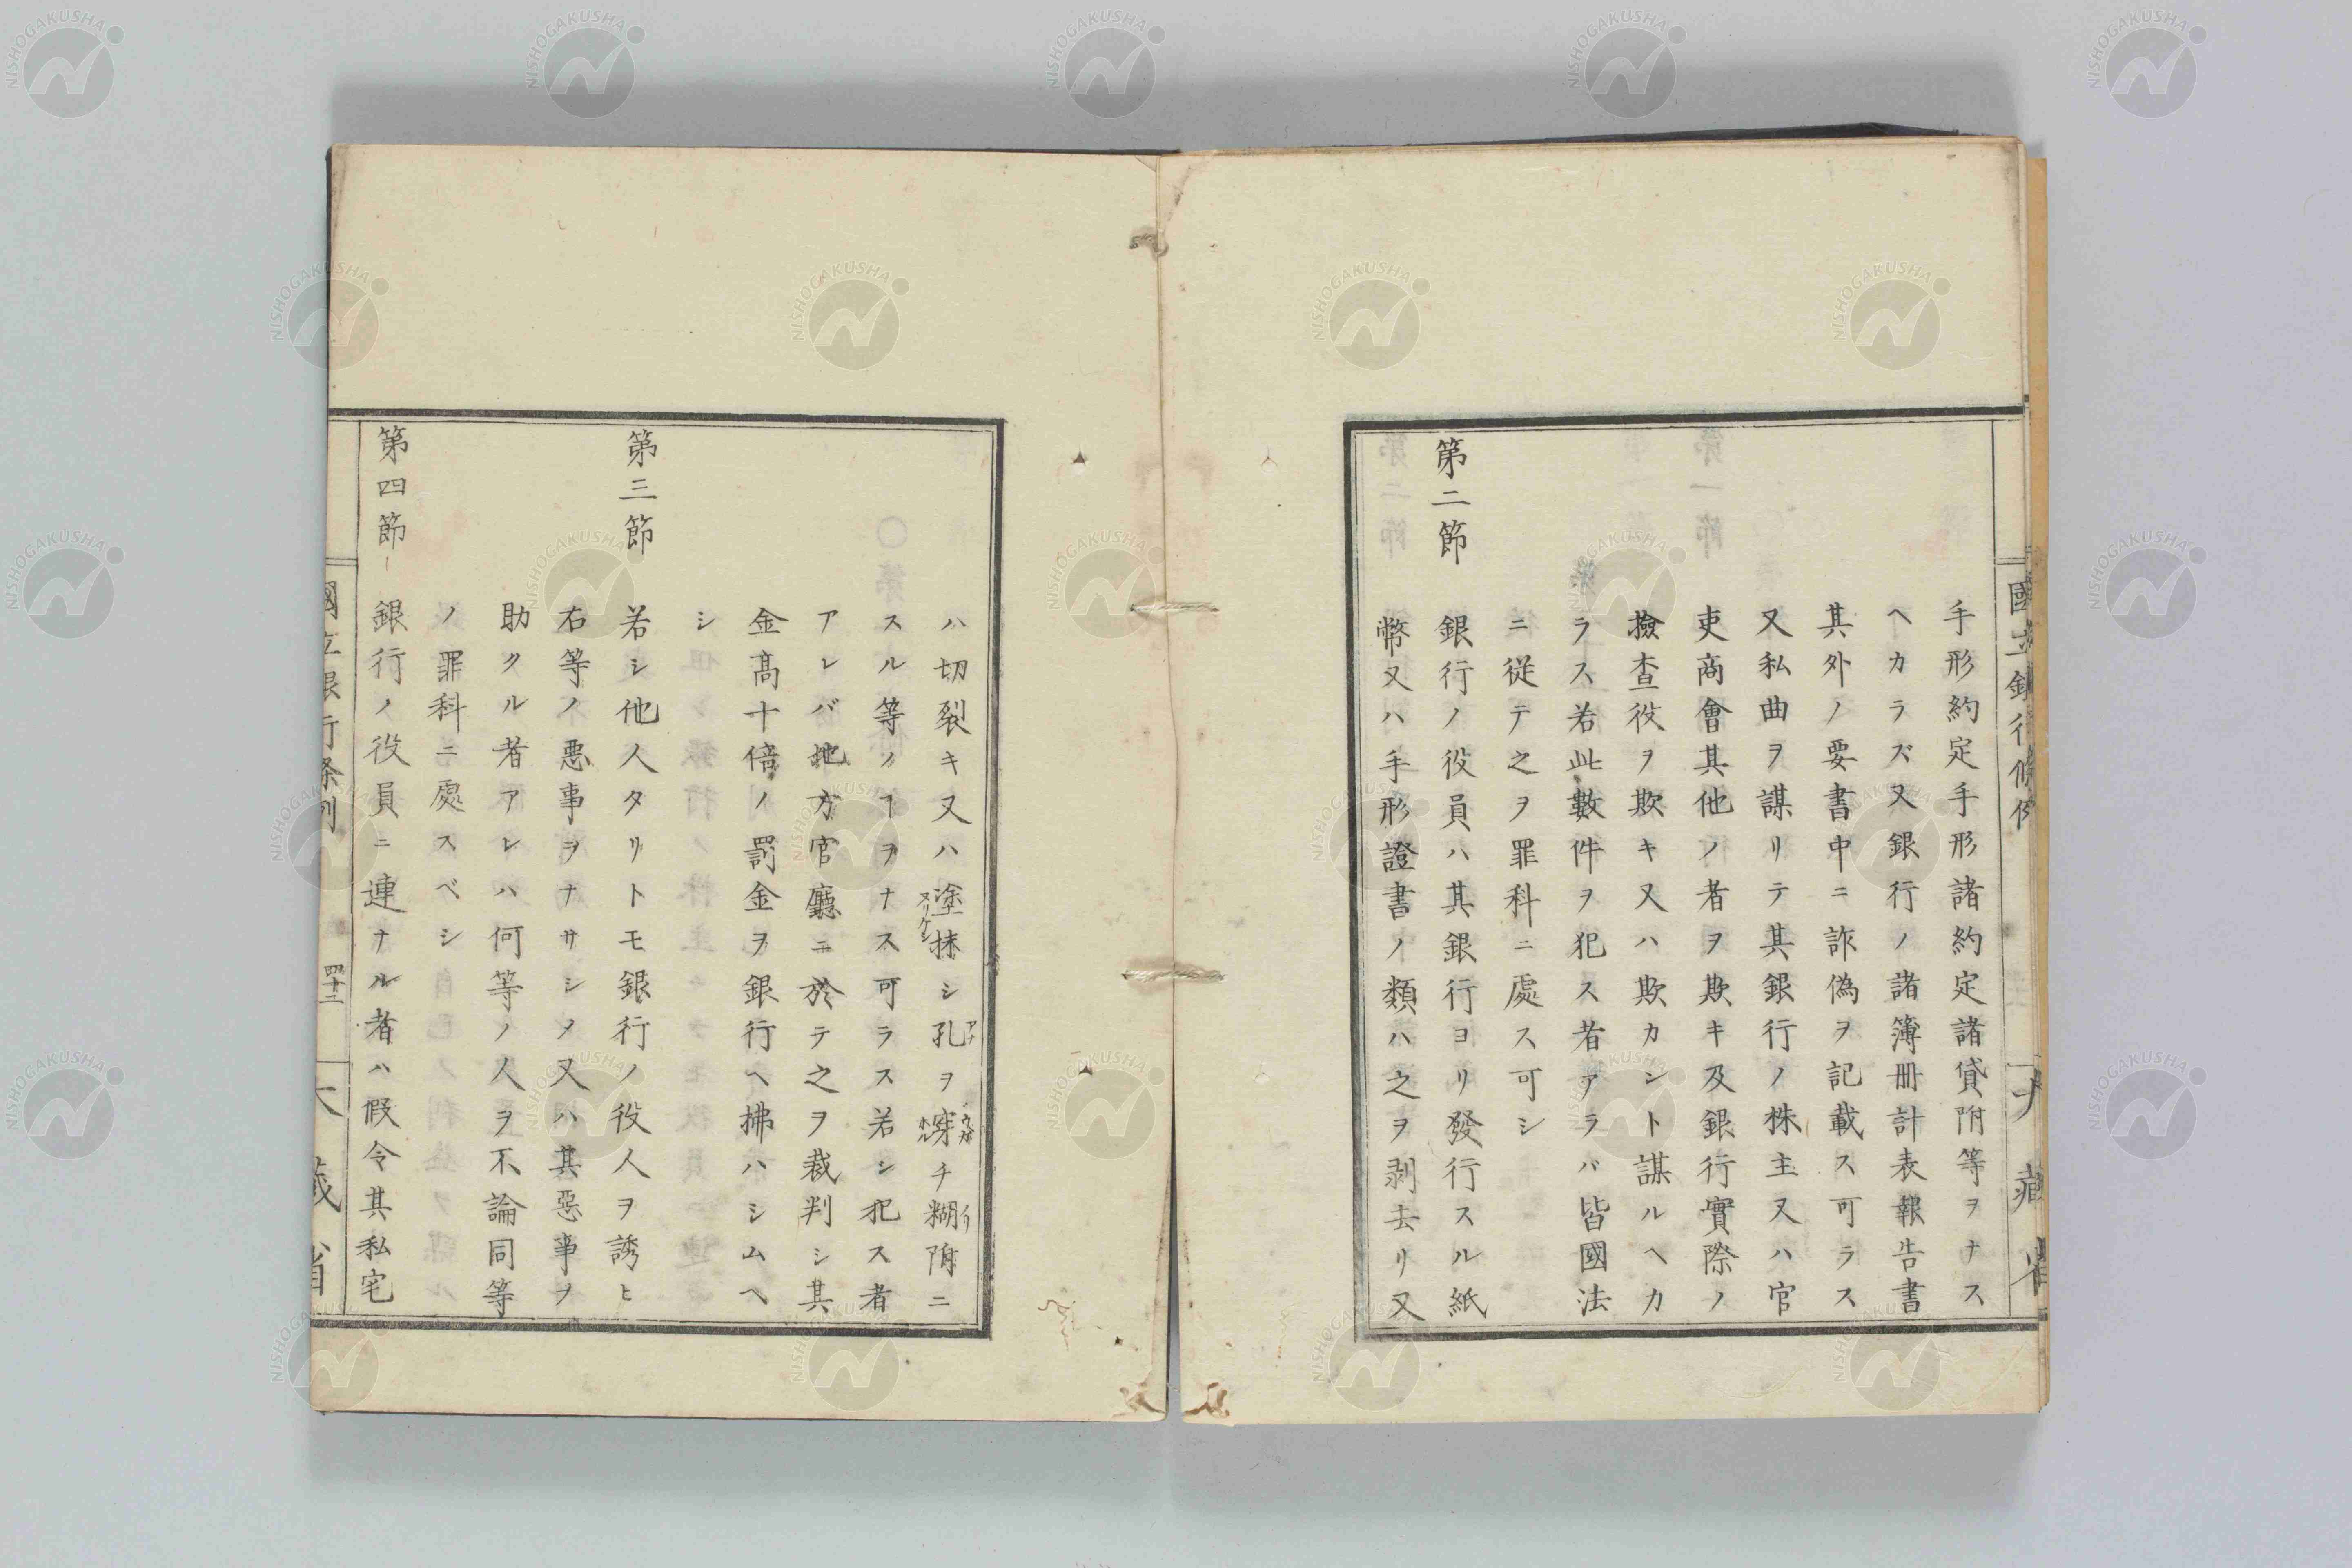 手形約定手形諸約定諸貸附等ヲナス
ヘカラズ又銀行ノ諸簿冊計表報告書
其外ノ要書中ニ詐偽ヲ記載ス可ラス
又私曲ヲ謀リテ其銀行ノ株主又ハ官
吏商會其他ノ者ヲ欺キ及銀行實際ノ
撿査役ヲ欺キ又ハ欺カント謀ルヘカ
ラス若此數件ヲ犯ス者アラバ皆國法
ニ従テ之ヲ罪科ニ處ス可シ
第二節 銀行ノ役員ハ其銀行ヨリ發行スル紙
幣又ハ手形證書ノ類ハ之ヲ剥去リ又
ハ切裂キ又ハ塗抹シ孔ヲ穿チ糊附ニ
スリケシ
アナ
ウガ
ホル
ノリ
スル等ノヿヲナス可ラス若シ犯ス者
アレバ地方官廳ニ於テ之ヲ裁判シ其
金高十倍ノ罰金ヲ銀行ヘ拂ハシムヘ
シ
第三節 若シ他人タリトモ銀行ノ役人ヲ誘ヒ
右等ノ悪事ヲナサシメ又ハ其惡事ヲ
助クル者アレハ何等ノ人ヲ不論同等
ノ罪科ニ處スベシ
第四節 銀行ノ役員ニ連ナル者ハ假令其私宅
國立銀行條例 四十二 大藏省
NISHOGAKUSHA